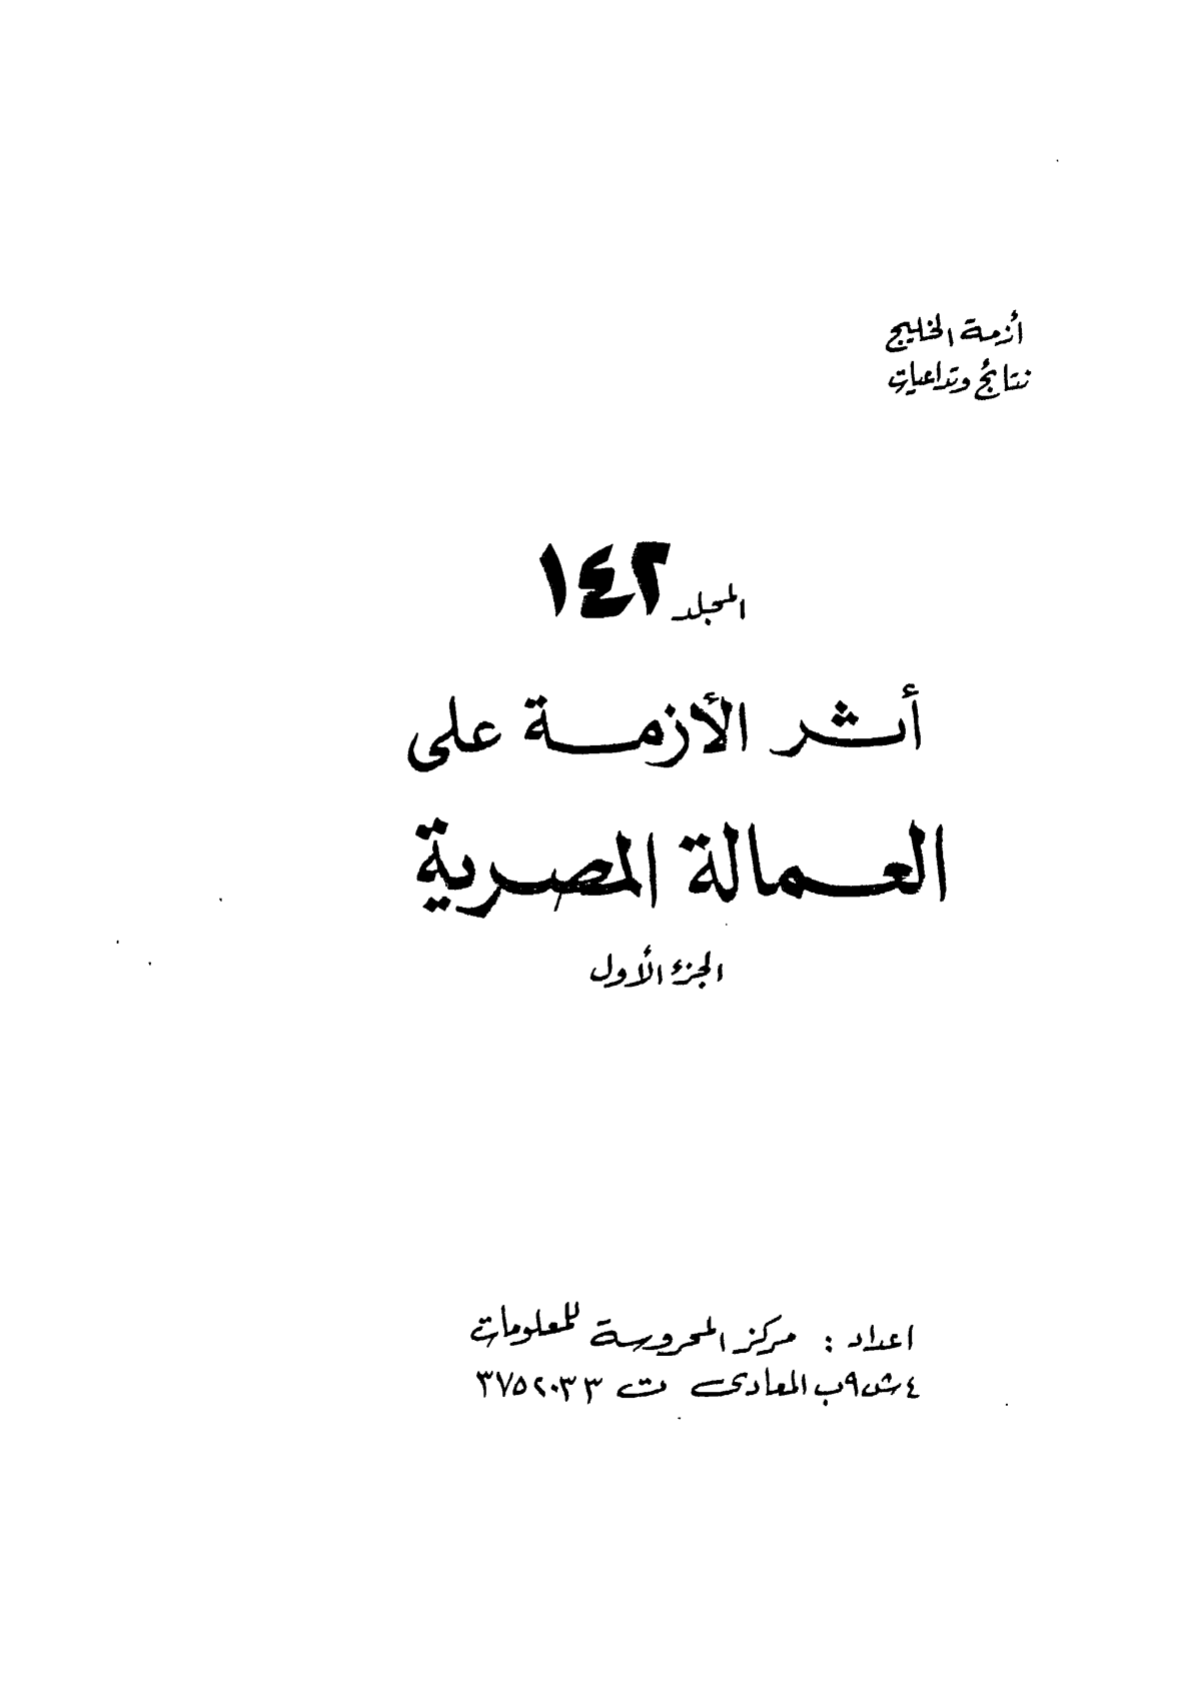 أزمة الخليج
نتائج وتداعيات
المجلد ١٤٢
أثر الأزمة على
العمالة المصرية
الجزء الأول
اعداد : مركز المحروسة للمعلومات
٤ ش ٩ب المعادى ت ٣٧٥٢٠٣٣